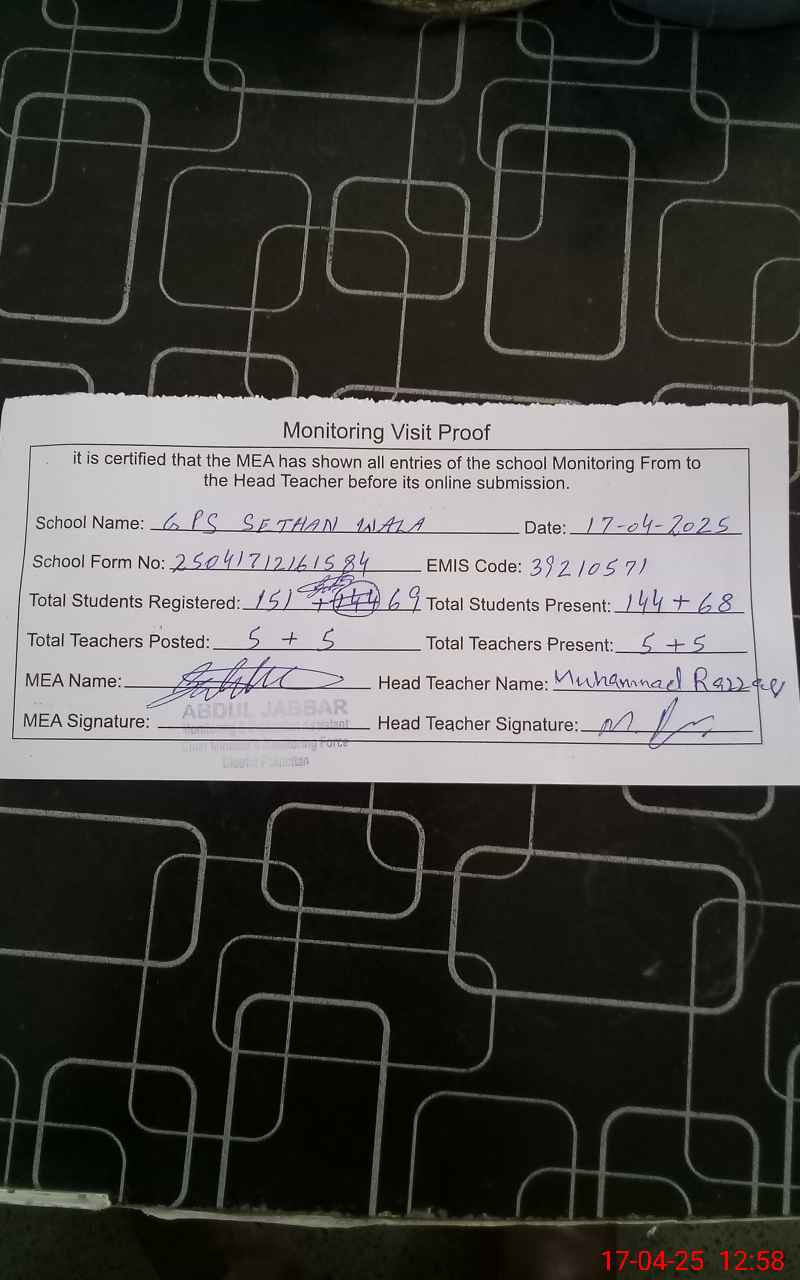 Monitoring Visit Proof
it is certified that the MEA has shown all entries of the school Monitoring From to
the Head Teacher before its online submission.
School Name: GPS SETHAN WALA Date: 17-04-2025
School Form No: 25041712161584 EMIS Code: 39210571
Total Students Registered: 151 + 69 Total Students Present: 144 + 68
Total Teachers Posted: 5 + 5 Total Teachers Present: 5 + 5
MEA Name: Head Teacher Name: Muhammad Razzaq
ABDUL JABBAR
MEA Signature: Head Teacher Signature:
Monitoring Force
17-04-25 12:58